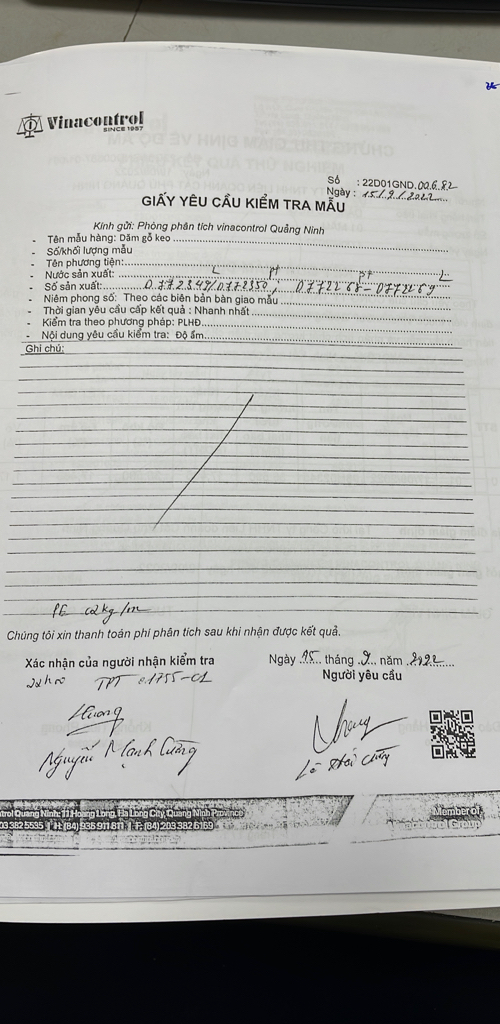 Vinacontrol
SINCE 1957
Số : 22D01GND.00682
Ngày : 15/9/2022
GIẤY YÊU CẦU KIỂM TRA MẪU
Kính gửi: Phòng phân tích vinacontrol Quảng Ninh
- Tên mẫu hàng: Dăm gỗ keo
- Số/khối lượng mẫu
- Tên phương tiện:
- Nước sản xuất:
- Số sản xuất: 0772349/0772350, 0772268-0772269
- Niêm phong số: Theo các biên bản bàn giao mẫu
- Thời gian yêu cầu cấp kết quả : Nhanh nhất
- Kiểm tra theo phương pháp: PLHĐ
- Nội dung yêu cầu kiểm tra: Độ ẩm
Ghi chú:
PE 02kg/m
Chúng tôi xin thanh toán phí phân tích sau khi nhận được kết quả.
Xác nhận của người nhận kiểm tra
22h00 TPT 01755-01
Nguyễn Mạnh Cường
Ngày 15 tháng 9 năm 2022
Người yêu cầu
Lê Hải
trol Quang Ninh: 11 Hoang Long, Ha Long City, Quang Ninh Province
03 382 5535 | H: (84) 936 911 811 | F: (84) 203 382 6169
Member of
Group